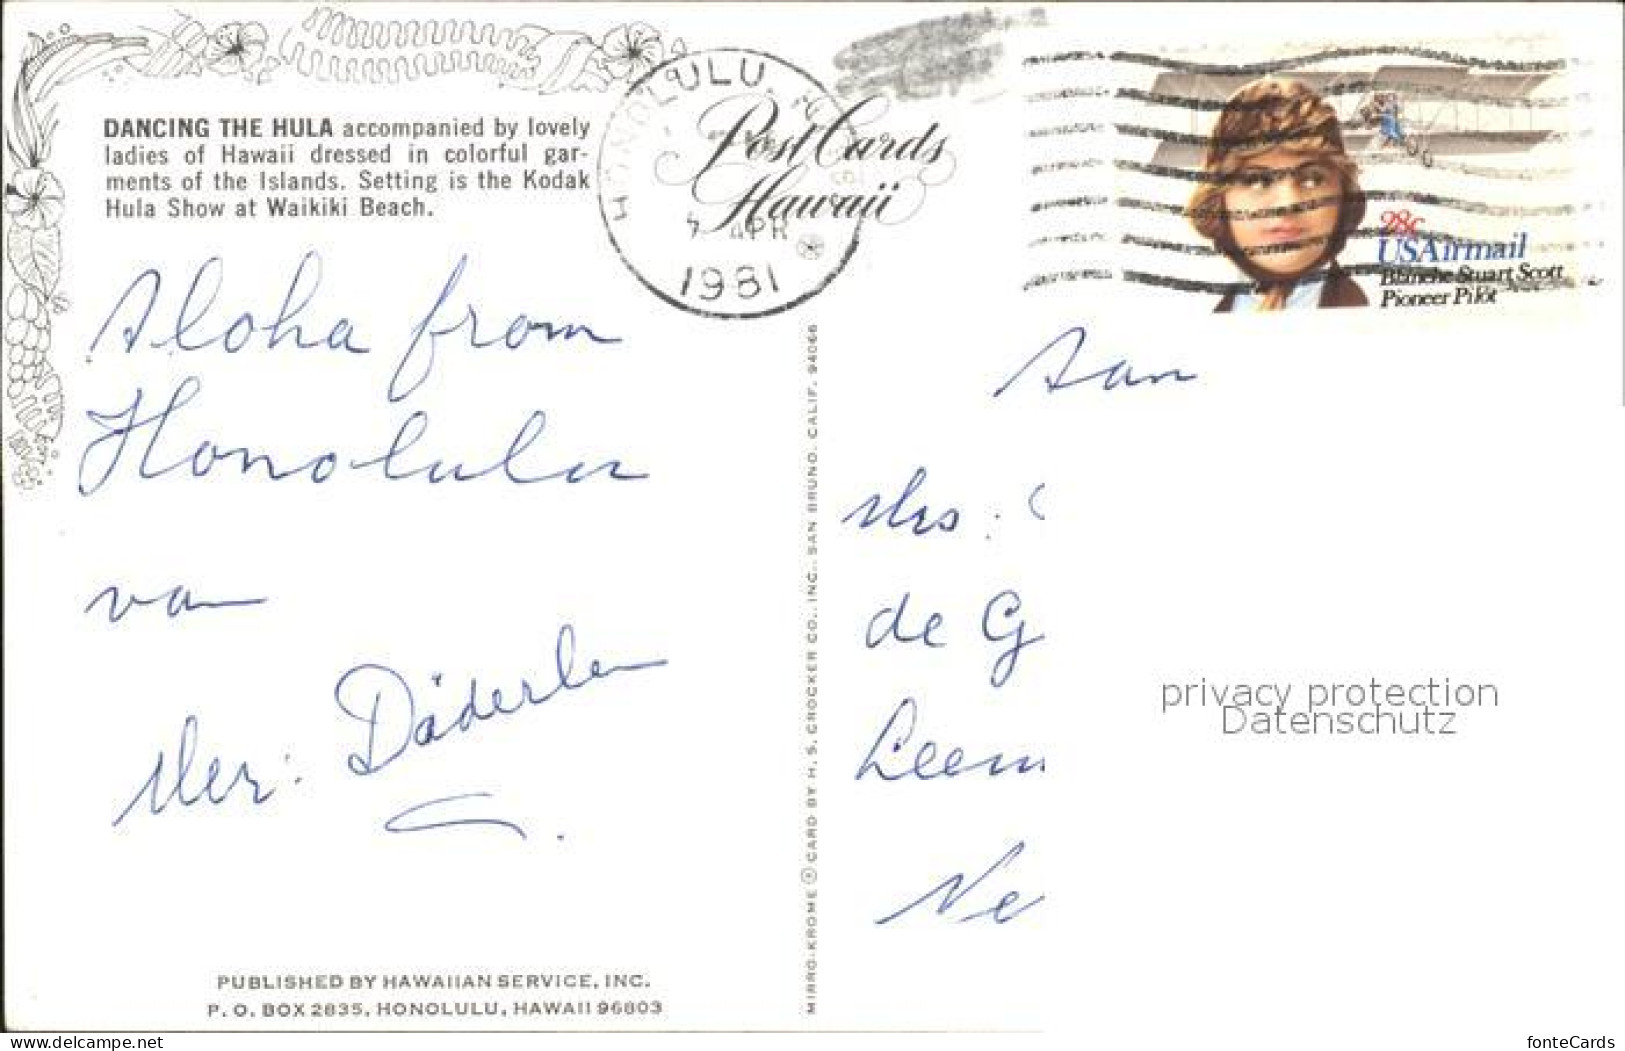 DANCING THE HULA accompanied by lovely
ladies of Hawaii dressed in colorful gar-
ments of the Islands. Setting is the Kodak
Hula Show at Waikiki Beach.
HONOLULU,
APR
1981
Post Cards
Hawaii
28c
USAirmail
Blanche Stuart Scott
Pioneer Pilot
Aloha from
Honolulu
van
Mer: Däderlen
PUBLISHED BY HAWAIIAN SERVICE, INC.
P. O. BOX 2835, HONOLULU, HAWAII 96803
MIRRO-KROME ® CARD BY H. S. CROCKER CO., INC., SAN BRUNO, CALIF. 94066
Aan
Mrs.
de G
Leem
Ne
privacy protection
Datenschutz
www.delcampe.net
fonteCards